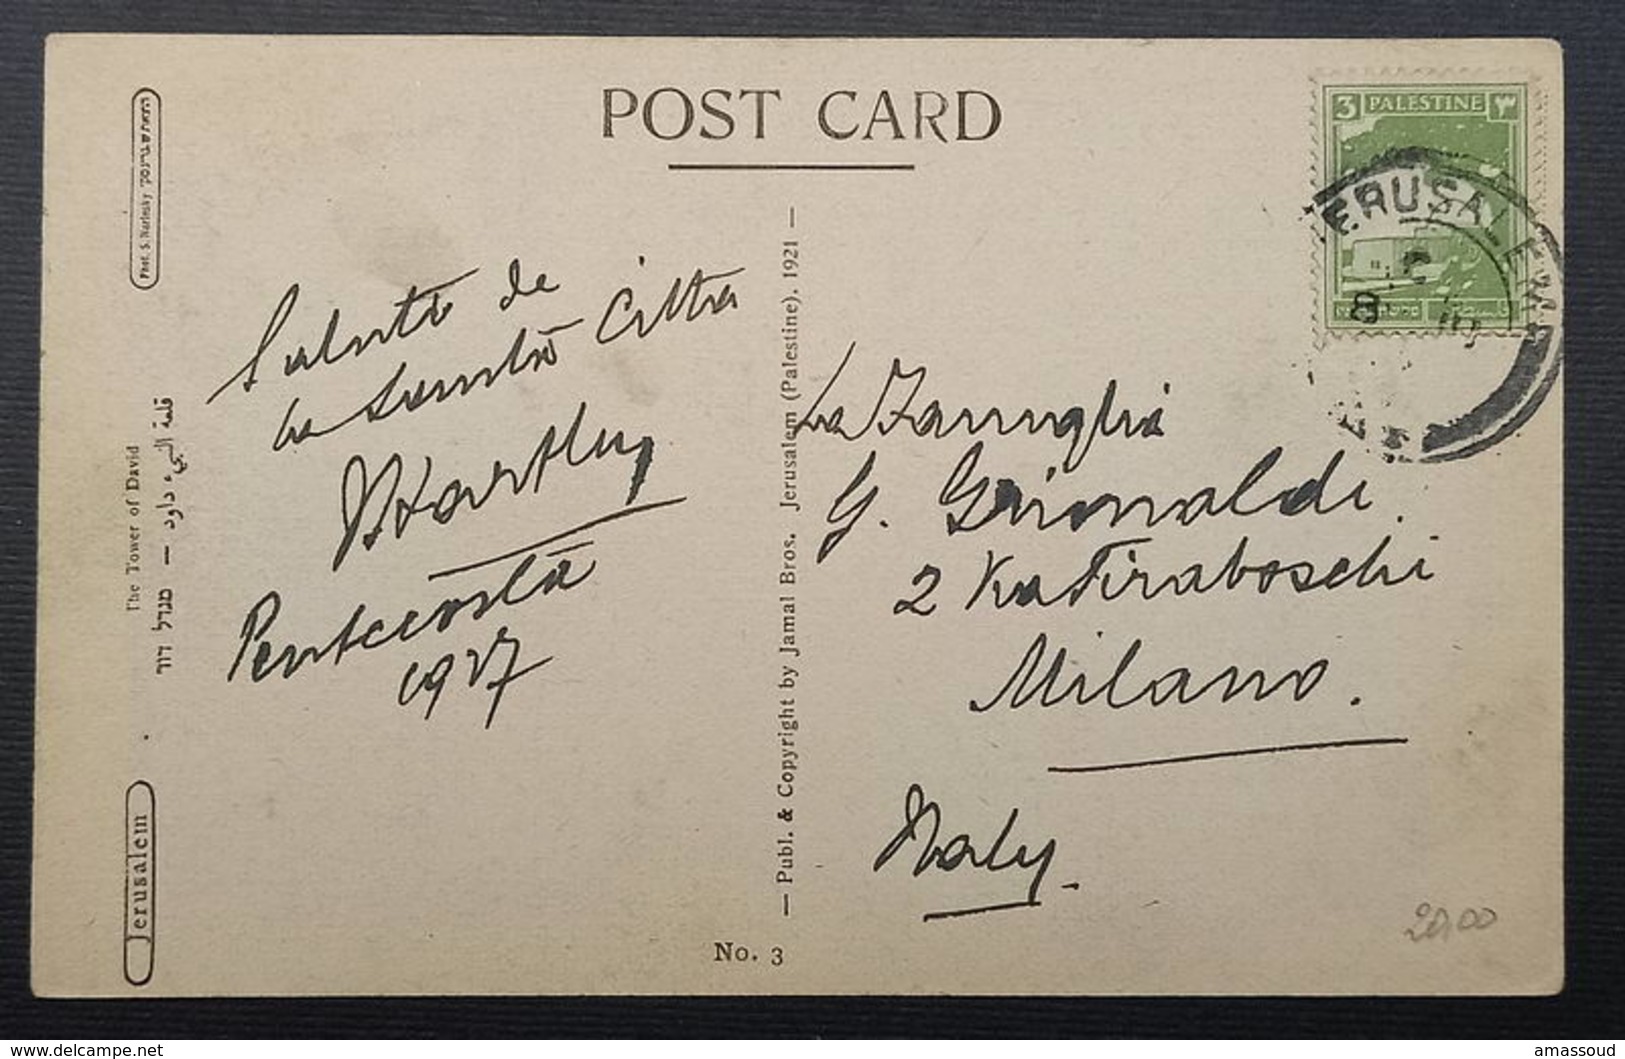 POST CARD
3 PALESTINE ٣
ERUSALEM
8
Phot. S. Narinsky
The Tower of David
קلعة
מגדל דוד —
Jerusalem
— Publ. & Copyright by Jamal Bros. Jerusalem (Palestine). 1921 —
Saluto de
la Santa Citta
Pentecosta
1927
La Famiglia
G. Grimaldi.
2 Via Tiraboschi
Milano.
Italy.
No. 3
20,00
www.delcampe.net
amassoud